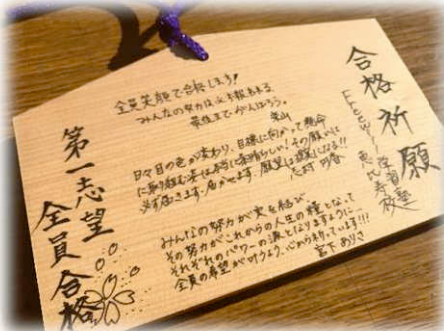 合格祈願
個別指導塾
恵比寿校
全員笑顔で合格しよう!
みんなの努力は必ず報われる。
最後までがんばろう。
日々目の色が変わり、目標に向かって懸命
に取り組む姿は本当に素晴らしい!その願いは
必ず届きます。届かせます。願望は確実に!!
みんなの努力が実を結び
その努力がこれからの人生の糧となって
それぞれのパワーの源となりますように…
全員の希望が叶うよう、心から祈っています!!!
宮下 ありさ
第一志望
全員合格